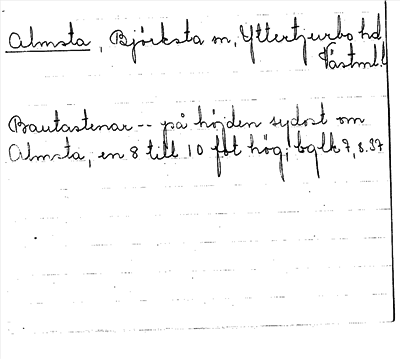 Almsta, Björksta sn, Yttertjurbo hd
Västml.
Bautastenar -- på höjden sydost om
Almsta, en 8 till 10 fot hög; bglk 7, s. 37